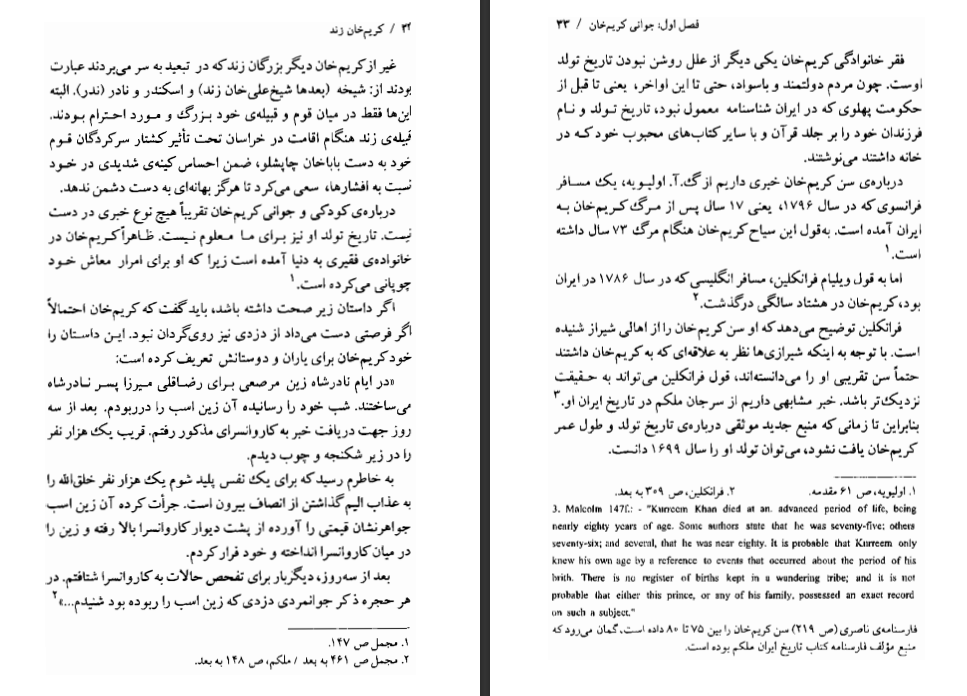 ۳۲ / کریم‌خان زند
غیر از کریم‌خان دیگر بزرگان زند که در تبعید به سر می‌بردند عبارت
بودند از: شیخه (بعدها شیخ‌علی‌خان زند) و اسکندر و نادر (ندر). البته
این‌ها فقط در میان قوم و قبیله‌ی خود بزرگ و مورد احترام بودند.
قبیله‌ی زند هنگام اقامت در خراسان تحت تأثیر کشتار سرکردگان قوم
خود به دست باباخان چاپشلو، ضمن احساس کینه‌ی شدیدی در خود
نسبت به افشارها، سعی می‌کرد تا هرگز بهانه‌ای به دست دشمن ندهد.
درباره‌ی کودکی و جوانی کریم‌خان تقریباً هیچ نوع خبری در دست
نیست. تاریخ تولد او نیز برای ما معلوم نیست. ظاهراً کریم‌خان در
خانواده‌ی فقیری به دنیا آمده است زیرا که او برای امرار معاش خود
چوپانی می‌کرده است.۱
اگر داستان زیر صحت داشته باشد، باید گفت که کریم‌خان احتمالاً
اگر فرصتی دست می‌داد از دزدی نیز روی‌گردان نبود. این داستان را
خود کریم‌خان برای یاران و دوستانش تعریف کرده است:
«در ایام نادرشاه زین مرصعی برای رضاقلی میرزا پسر نادرشاه
می‌ساختند. شب خود را رسانیده آن زین اسب را درربودم. بعد از سه
روز جهت دریافت خبر به کاروانسرای مذکور رفتم. قریب یک هزار نفر
را در زیر شکنجه و چوب دیدم.
به خاطرم رسید که برای یک نفس پلید شوم یک هزار نفر خلق‌الله را
به عذاب الیم گذاشتن از انصاف بیرون است. جرأت کرده آن زین اسب
جواهرنشان قیمتی را آورده از پشت دیوار کاروانسرا بالا رفته و زین را
در میان کاروانسرا انداخته و خود فرار کردم.
بعد از سه‌روز، دیگربار برای تفحص حالات به کاروانسرا شتافتم. در
هر حجره ذکر جوانمردی دزدی که زین اسب را ربوده بود شنیدم...»۲
۱. مجمل ص ۱۴۷.
۲. مجمل ص ۴۶۱ به بعد / ملکم، ص ۱۴۸ به بعد.
فصل اول: جوانی کریم‌خان / ۳۳
فقر خانوادگی کریم‌خان یکی دیگر از علل روشن نبودن تاریخ تولد
اوست. چون مردم دولتمند و باسواد، حتی تا این اواخر، یعنی تا قبل از
حکومت پهلوی که در ایران شناسنامه معمول نبود، تاریخ تولد و نام
فرزندان خود را بر جلد قرآن و با سایر کتاب‌های محبوب خود که در
خانه داشتند می‌نوشتند.
درباره‌ی سن کریم‌خان خبری داریم از گ.آ. اولیویه، یک مسافر
فرانسوی که در سال ۱۷۹۶، یعنی ۱۷ سال پس از مرگ کریم‌خان به
ایران آمده است. به‌قول این سیاح کریم‌خان هنگام مرگ ۷۳ سال داشته
است.۱
اما به قول ویلیام فرانکلین، مسافر انگلیسی که در سال ۱۷۸۶ در ایران
بود، کریم‌خان در هشتاد سالگی درگذشت.۲
فرانکلین توضیح می‌دهد که او سن کریم‌خان را از اهالی شیراز شنیده
است. با توجه به اینکه شیرازی‌ها نظر به علاقه‌ای که به کریم‌خان داشتند
حتماً سن تقریبی او را می‌دانسته‌اند، قول فرانکلین می‌تواند به حقیقت
نزدیک‌تر باشد. خبر مشابهی داریم از سرجان ملکم در تاریخ ایران او.۳
بنابراین تا زمانی که منبع جدید موثقی درباره‌ی تاریخ تولد و طول عمر
کریم‌خان یافت نشود، می‌توان تولد او را سال ۱۶۹۹ دانست.
۱. اولیویه، ص ۶۱ مقدمه. ۲. فرانکلین، ص ۳۰۹ به بعد.
3. Malcolm 147f.: - "Kurreem Khan died at an advanced period of life, being
nearly eighty years of age. Some authors state that he was seventy-five; others
seventy-six; and several, that he was near eighty. It is probable that Kurreem only
knew his own age by a reference to events that occurred about the period of his
brith. There is no register of births kept in a wandering tribe; and it is not
probable that either this prince, or any of his family, possessed an exact record
on such a subject."
فارسنامه‌ی ناصری (ص ۲۱۹) سن کریم‌خان را بین ۷۵ تا ۸۰ داده است. گمان می‌رود که
منبع مؤلف فارسنامه کتاب تاریخ ایران ملکم بوده است.